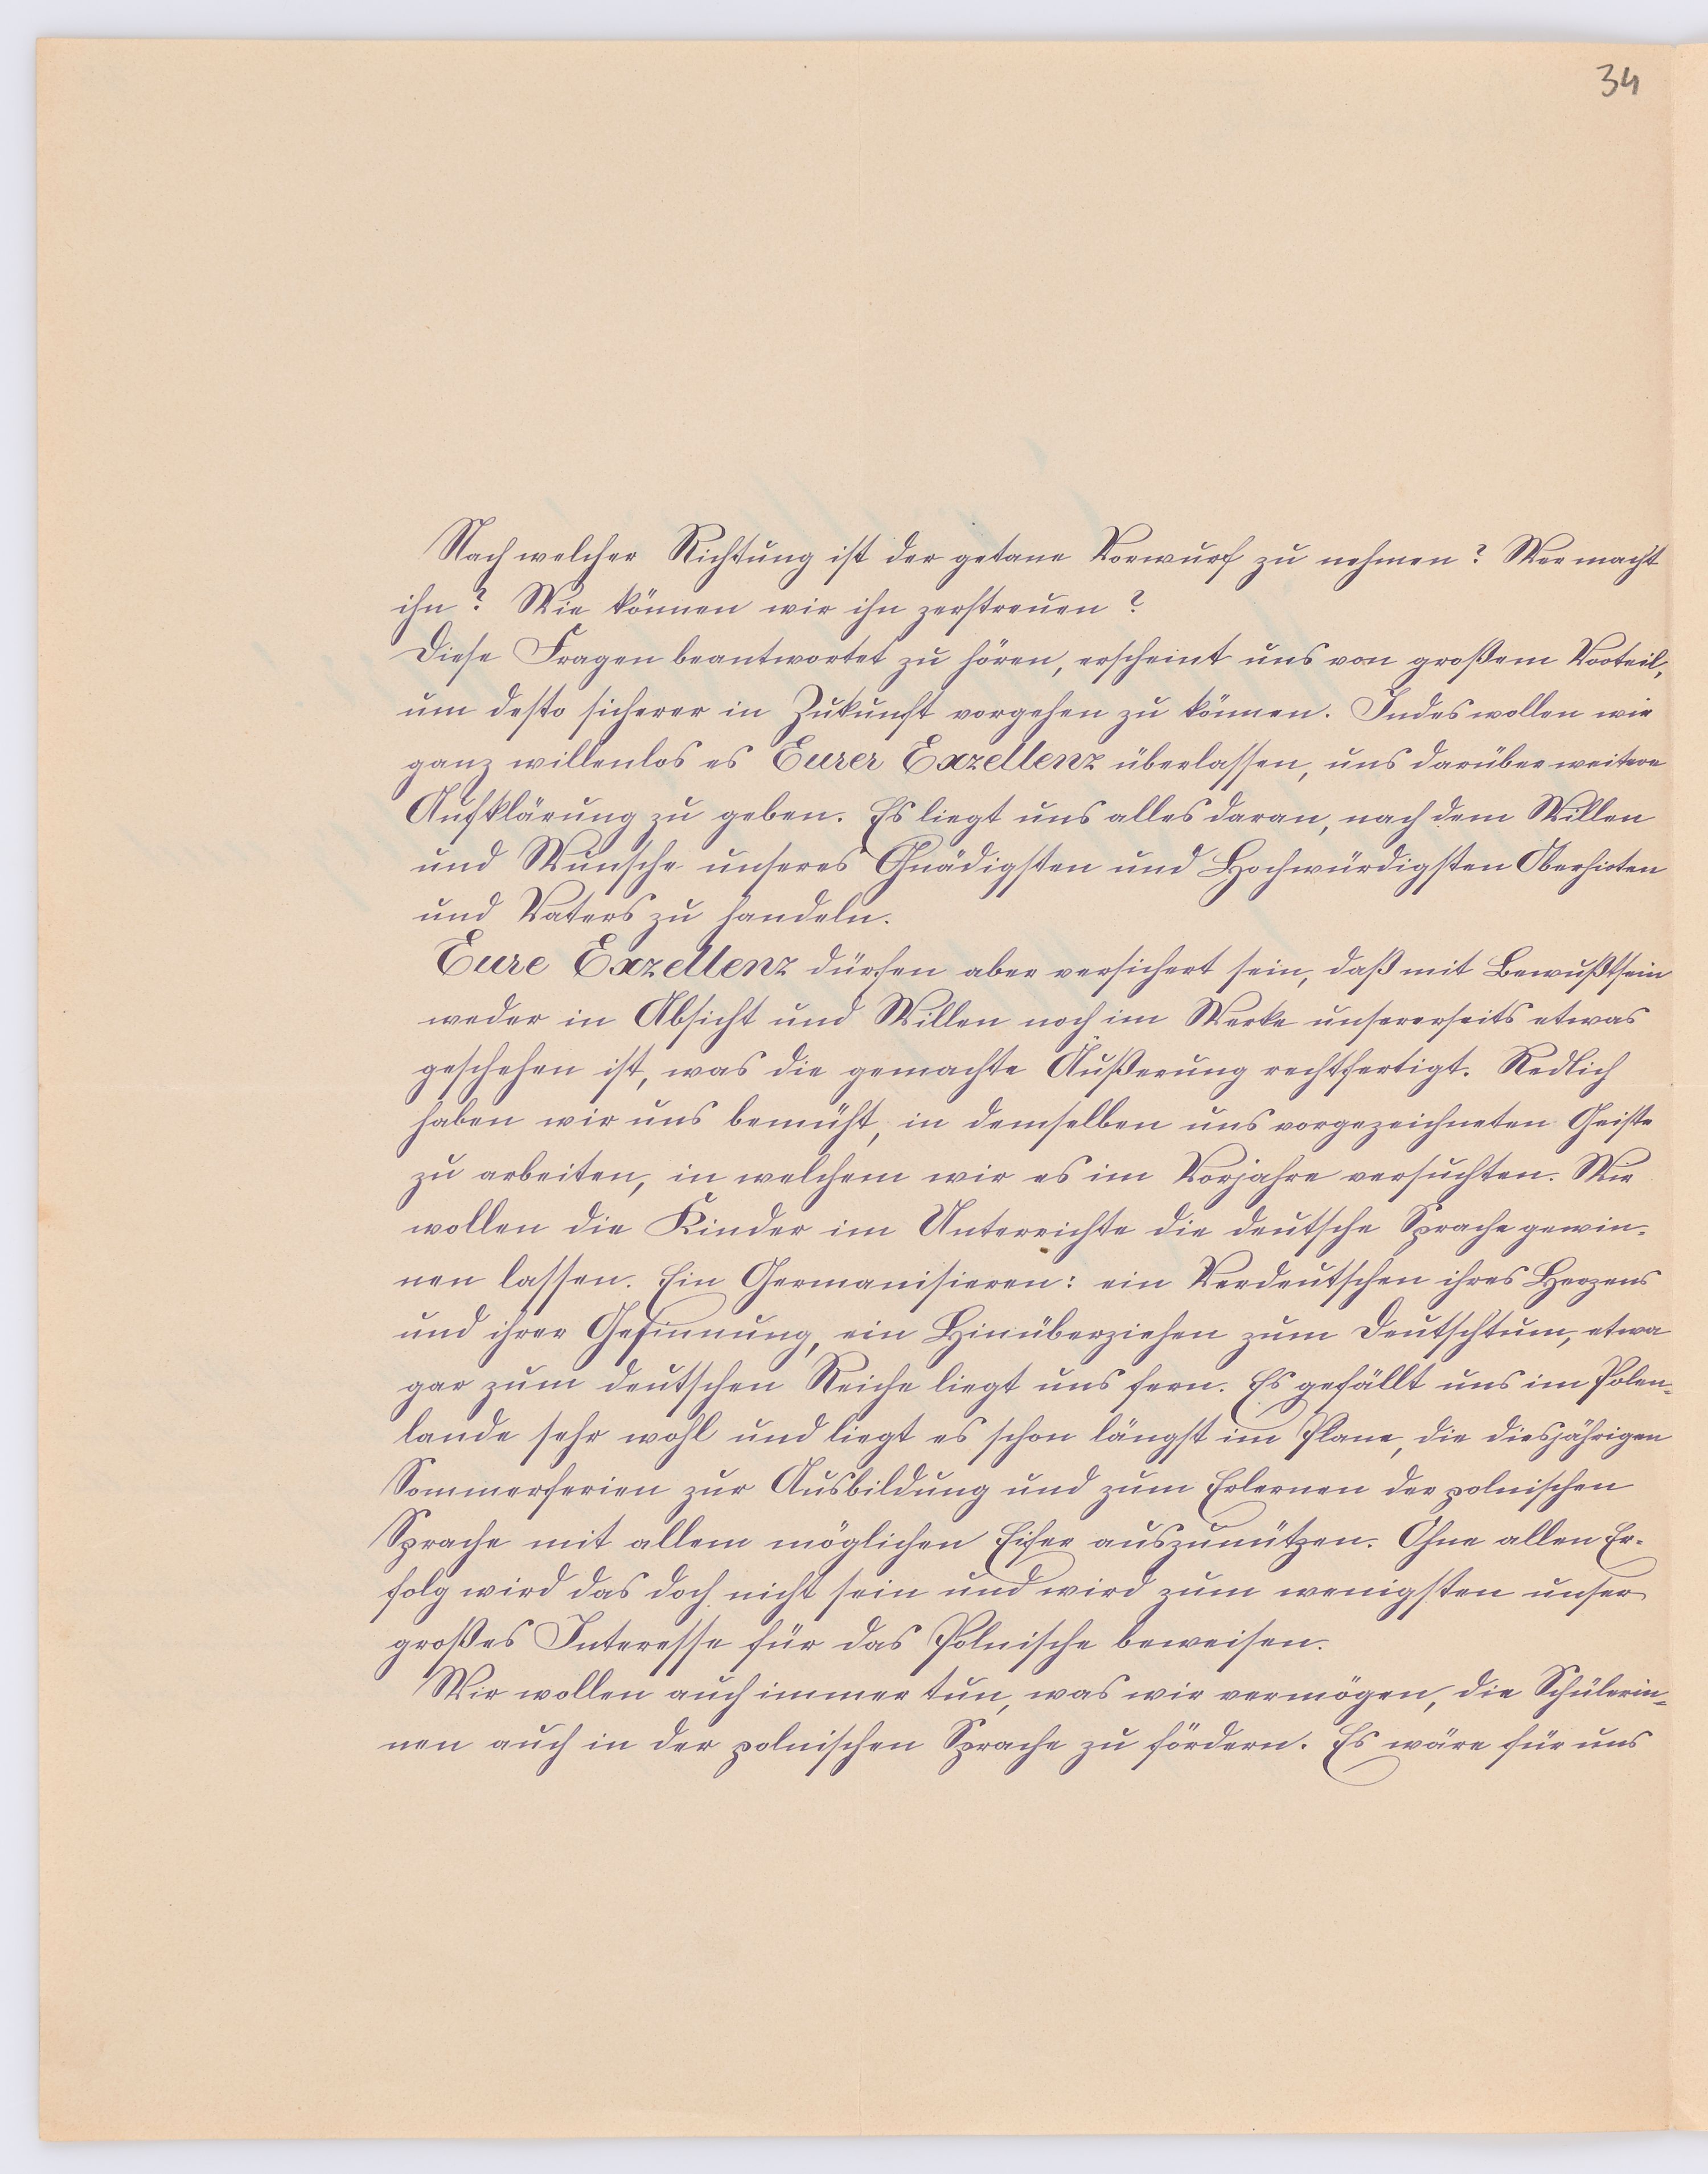 34
Nach welcher Richtung ist der getane Vorwurf zu nehmen? Wer macht
ihn? Wie können wir ihn zerstreuen?
Diese Fragen beantwortet zu hören, erscheint uns von großem Vorteil,
um desto sicherer in Zukunft vorgehen zu können. Indes wollen wir
ganz willenlos es Eurer Exzellenz überlassen, uns darüber weitere
Aufklärung zu geben. Es liegt uns alles daran, nach dem Willen
und Wunsche unseres Gnädigsten und Hochwürdigsten Oberhirten
und Vaters zu handeln.
Eure Exzellenz dürfen aber versichert sein, daß mit Bewußtsein
weder in Absicht und Willen noch im Werke unsererseits etwas
geschehen ist, was die gemachte Äußerung rechtfertigt. Redlich
haben wir uns bemüht, in demselben uns vorgezeichneten Geiste
zu arbeiten, in welchem wir es im Vorjahre versuchten. Wir
wollen die Kinder im Unterrichte die deutsche Sprache gewin-
nen lassen. Ein Germanisieren: ein Verdeutschen ihres Herzens
und ihrer Gesinnung, ein Hinüberziehen zum Deutschtum, etwa
gar zum deutschen Reiche liegt uns fern. Es gefällt uns im Polen-
lande sehr wohl und liegt es schon längst im Plane, die diesjährigen
Sommerferien zur Ausbildung und zum Erlernen der polnischen
Sprache mit allem möglichen Eifer auszunützen. Ohne allen Er-
folg wird das doch nicht sein und wird zum wenigsten unser
großes Interesse für das Polnische beweisen.
Wir wollen auch immer tun, was wir vermögen, die Schülerin-
nen auch in der polnischen Sprache zu fördern. Es wäre für uns